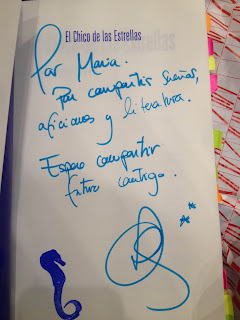 El Chico de las Estrellas
Par María.
Por compartir sueños,
aficiones y literatura.
Espero compartir
futuro contigo.